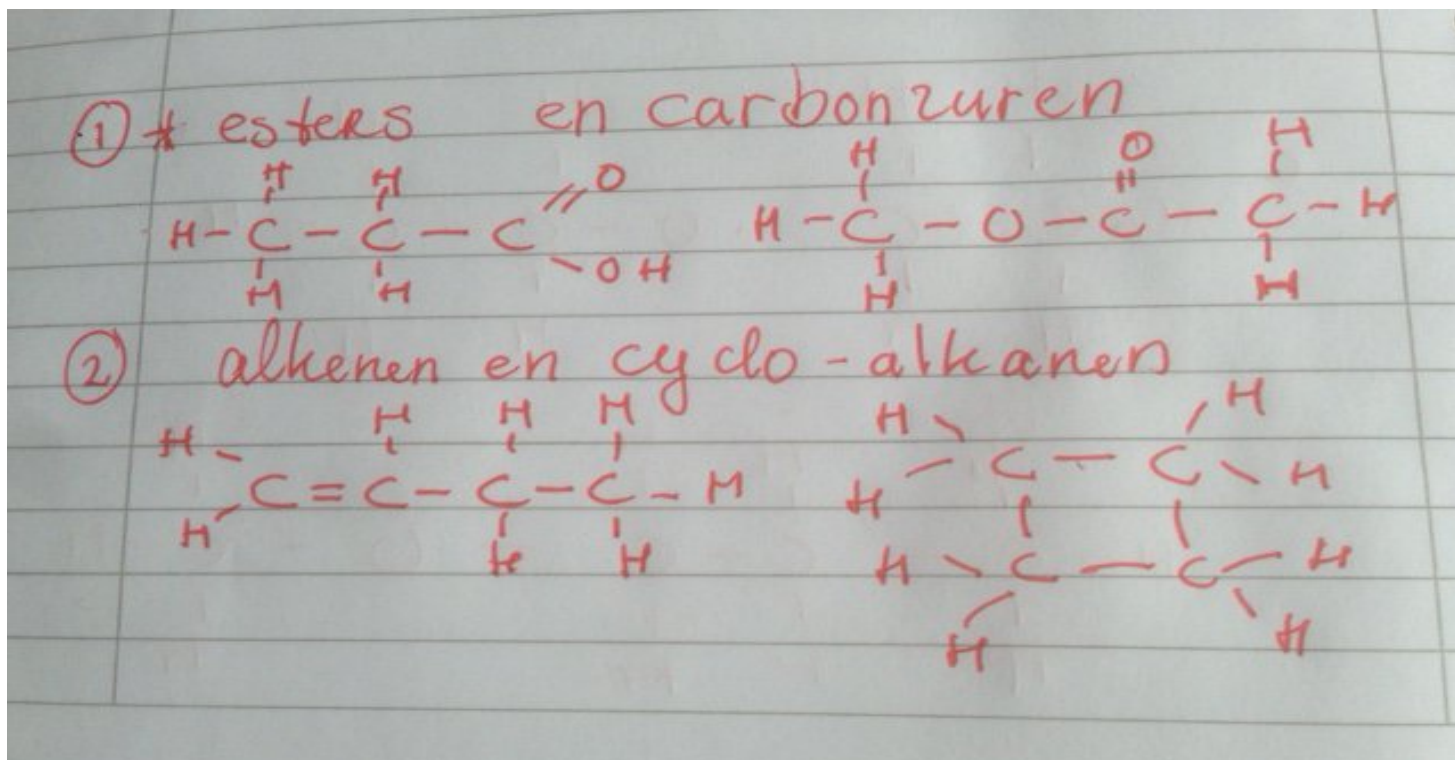 ① * esters en carbonzuren
H H O H O H
H - C - C - C H - C - O - C - C - H
H H OH H H
② alkenen en cyclo-alkanen
H H H H H H
C = C - C - C - H H C - C H
H H H H C - C H
H H